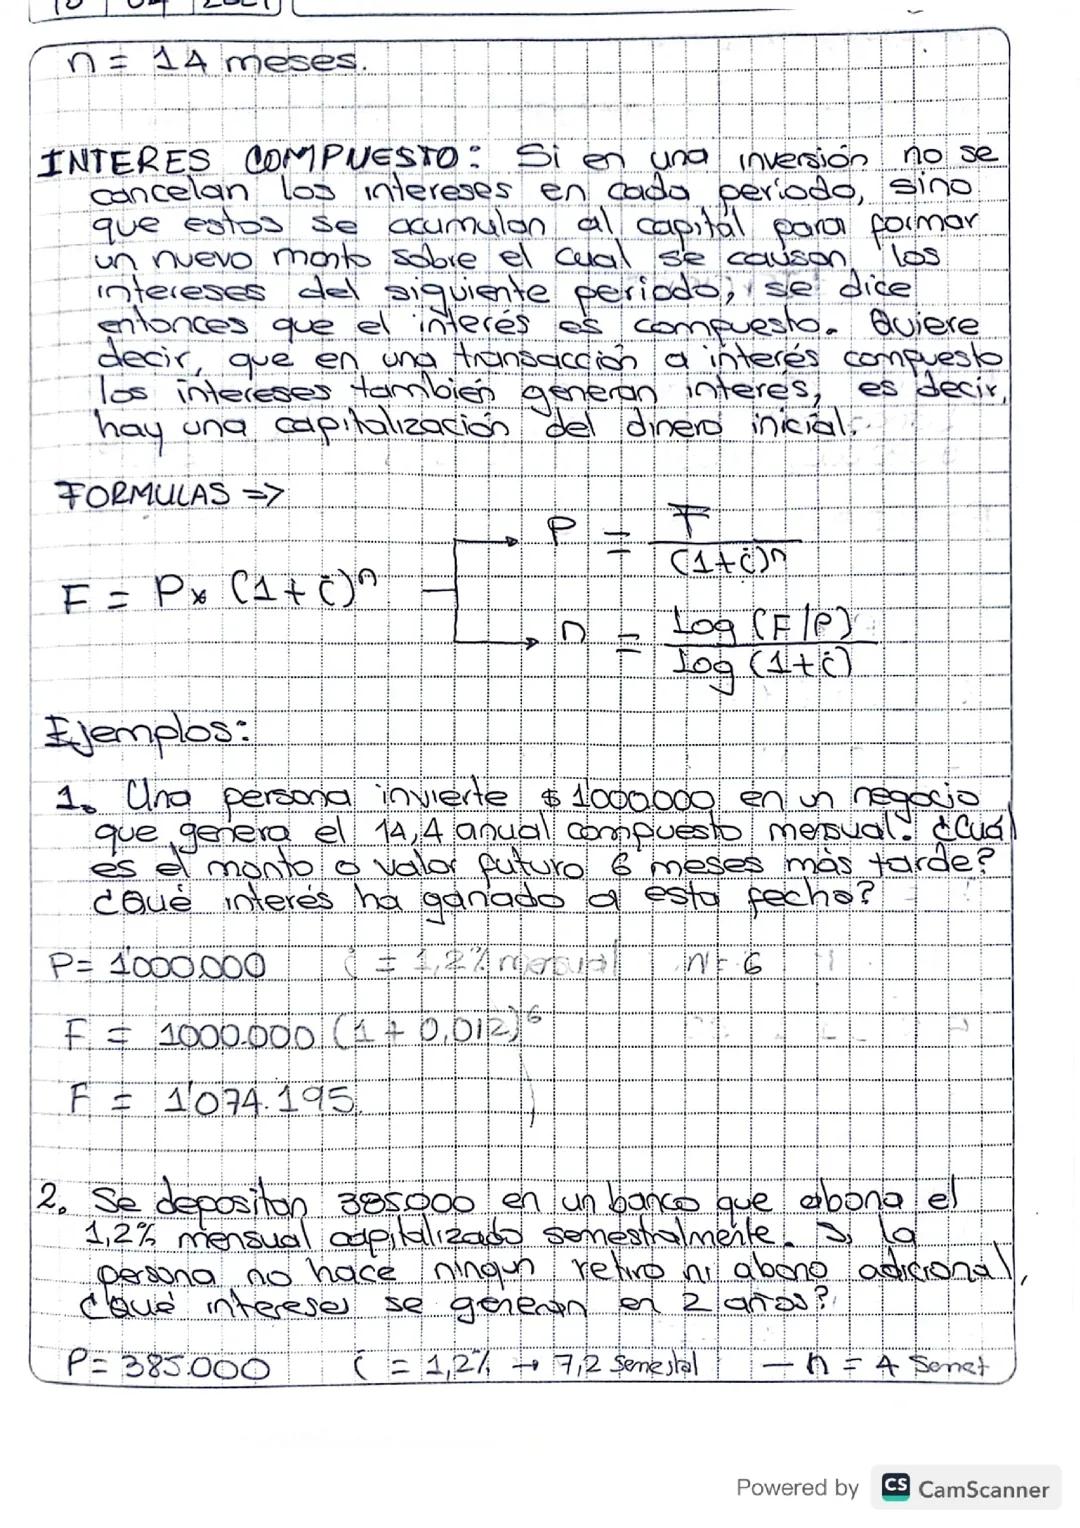 n = 14 meses.
INTERES COMPUESTO: Si en una inversión no se
cancelan los intereses en cada periodo, sino
que estos se acumulan al capital para formar
un nuevo monto sobre el cual se causan los
intereses del siguiente periodo, se dice
entonces que el interés es compuesto. Quiere
decir, que en una transacción a interés compuesto
los intereses también generan interés, es decir,
hay una capitalización del dinero inicial.
FORMULAS =>
F = P x (1 + i)ⁿ
P = F / (1+i)ⁿ
n = Log (F/P) / log (1+i)
Ejemplos:
1. Una persona invierte $1000.000 en un negocio
que genera el 14,4 anual compuesto mensual. ¿Cuál
es el monto o valor futuro 6 meses más tarde?
¿Qué interés ha ganado a esta fecha?
P= 1'000.000 i = 1,2% mensual N= 6
F = 1000.000 (1 + 0,012)⁶
F = 1'074.195.
2. Se depositan 385.000 en un banco que abona el
1,2% mensual capitalizado semestralmente. Si la
persona no hace ningun retiro ni abono adicional,
¿Qué intereses se generan en 2 años?
P= 385.000 i = 1,2% → 7,2 Semestal — n = 4 Semet
Powered by CS CamScanner